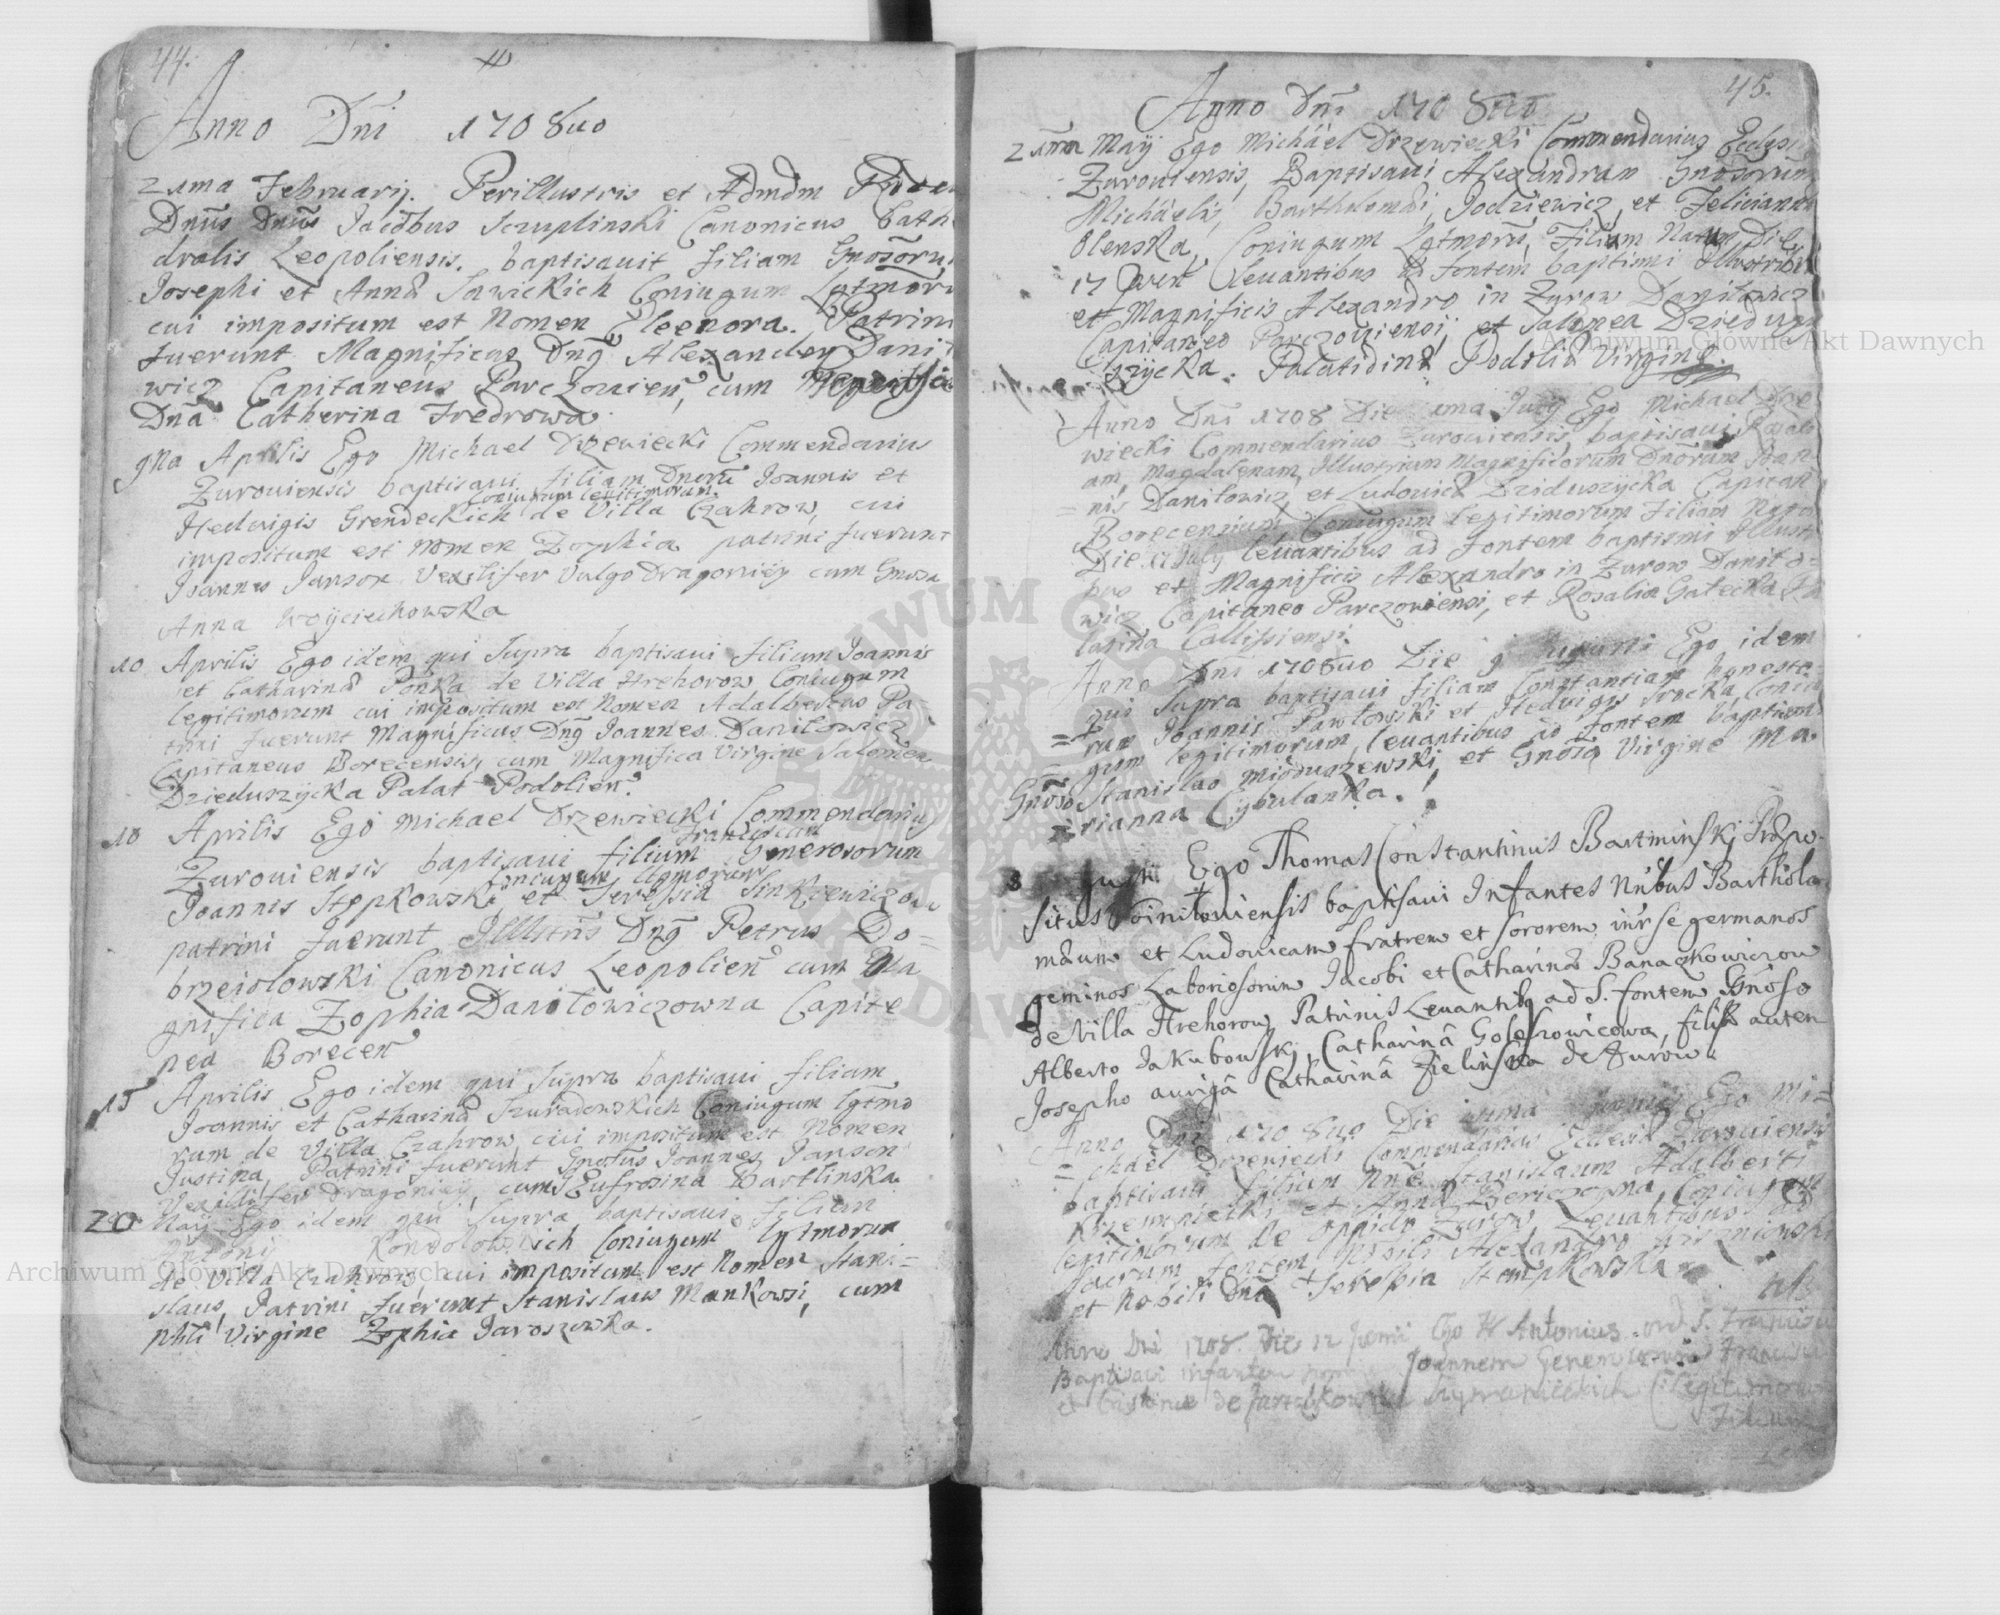 44.
Anno Dni 1708uo
21ma Februarij. Perillustris et Admdm
Dnus Dnus Jacobus Sczuplinski Canonicus Cath
dralis Leopoliensis, baptisauit filiam Gnosoru
Josephi et Annæ Sawickich Coniugum Lgtmoru
cui impositum est Nomen Eleonora. Patrini
fuerunt Magnificus Dng Alexander Dani
wicz Capitaneus Parczouien, cum
Dna Catherina Fredrowa
9na Aprilis Ego Michael Drzewiecki Commendarius
Zurouiensis baptisaui filiam Dnoru Joannis et
Coniugum legitimorum
Hedwigis Grendeckich de Villa Czahrow, cui
impositum est nomen Zophia patrini fuerunt
Joannes Janson Vexilifer Vulgo Dragoniey cum Gnosa
Anna Woyciechowska
10 Aprilis Ego idem qui supra baptisaui filium Joannis
et Catharinæ Ponka de Villa Hrehorow Coniugum
legitimorum cui impositum est Nomen Adalbertus Pa-
trini fuerunt Magnificus Dng Joannes Daniłowicz
Capitaneus Borecensis, cum Magnifica Virgine Salomea
Dzieduszycka Palat Podolien.
10 Aprilis Ego Michael Drzewiecki Commendarius
Franciscum
Zurouiensis baptisaui filium Generosorum
Coniugum Lgtmorum
Joannis Stepkowski et Teressiæ Sinkiewiczowa
patrini fuerunt Illustris Dng Petrus Do=
brzeiolowski Canonicus Leopolien cum Ma
gnifica Zophia Daniłowiczowna Capite
nea Borecen
15 Aprilis Ego idem qui supra baptisaui filiam
Joannis et Catharinæ Szuradowskich Coniugum lgtmo
rum de Villa Czahrow, cui impositum est Nomen
Justina, Patrini fuerunt Gnosus Joannes Janson
Vexilifer Dragoniey, cum Eufrosina Bartlinska.
20 Maij Ego idem qui supra baptisaui filium
Antonij Coniugum lgtmorum
de Villa Czahrow, cui impositum est Nomen Stani-
slaus, Patrini fuerunt Stanislaus Mankowsi, cum
Nbili Virgine Zophia Jaroszowska.
45.
Anno Dni 1708uo
21ma Maij Ego Michael Drzewiecki Commendarius Ecclesi
Zurouiensis, Baptisaui Alexandram Gnosorum
Michaelis, Bartholomæi, Jodziewicz, et Felicianna
Olenska, Coniugum Lgtmoru, Filiam Natam Die
17 Levantibus ad fontem baptismi Illustribus
et Magnificis Alexandro in Zurow Daniłowicz
Capitaneo Parczouiensi, et Salomea Dziedu
szycka. Palatidinæ Podoliæ Virgine.
Anno Dni 1708 Die 1ma July Ego Michael Drze
wiecki Commendarius Zurouiensis, baptisaui Rosali
am, Magdalenam, Illustrium Magnificorum Dnorum Joan
= nis Daniłowicz et Ludouicæ Dzieduszycka Capitan
Borecensium Coniugum legitimorum filiam Nata
Die July leuantibus ad fontem baptismi Illustri
bus et Magnificis Alexandro in Zurow Daniło-
wicz Capitaneo Parczowiensi, et Rosalia Gałecka Pa
latina Callissiensi.
Anno Dni 1708uo Die 9 Augusti Ego idem
qui supra baptisaui filiam Constantiam honesto-
= rum Joannis Pawłowski et Hedvigis Srocka, Coniu
gum legitimorum, leuantibus ad fontem baptism
Gnoso Stanislao Mioduszewski, et Gnosa Virgine Ma-
= rianna Cybulanka.
8 Ego Thomas Constantinus Bartminski Præpo-
situs Woiniłouiensis baptisaui Infantes Nnibus Bartholo
mæum et Ludouicam fratrem et sororem inter se germanos
geminos Laboriosorum Jacobi et Catharinæ Banaszkowiczow
de Villa Hrehorow Patrinis Levantibg ad S. fontem Gnoso
Alberto Jakubowski, Catharinâ Goleszowicowa, filiæ autem
Josepho aurigâ Catharinâ Zielinska de Zurow.
Anno Dni 1708uo Die Ego Mi=
= chael Drzewiecki Commendarius Ecclesiæ Zurouiensis
baptisaui filium Nne Stanislaum Adalberti
Krzempietki et Anna Coniugum
legitimorum de oppido Zurow, Leuantibus ad
sacrum fontem Nobili Alexandro
et Nobili Dna Teressia Stempkowska.
Anno Dni 1708. Die 12 Junii Ego Fr Antonius ord. S. Francisci
Baptisavi infantem Joannem Generosorum
et Cristinæ de legitimorum
Filium